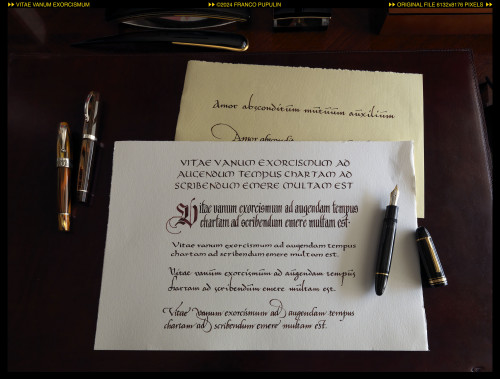 ▸▸ VITAE VANUM EXORCISMUM
©2024 FRANCO PUPULIN
▸▸ ORIGINAL FILE 8132x8176 PIXELS ▸▸
Amor absconditum mutuum auxilium
Amor
VITAE VANUM EXORCISMUM AD
AUGENDAM TEMPUS CHARTAM AD
SCRIBENDUM EMERE MULTAM EST
Vitae vanum exorcismum ad augendam tempus
chartam ad scribendum emere multam est.
Vitae vanum exorcismum ad augendam tempus
chartam ad scribendum emere multam est.
Vitae vanum exorcismum ad augendam tempus
chartam ad scribendum emere multam est.
Vitae vanum exorcismum ad augendam tempus
chartam ad scribendum emere multam est.